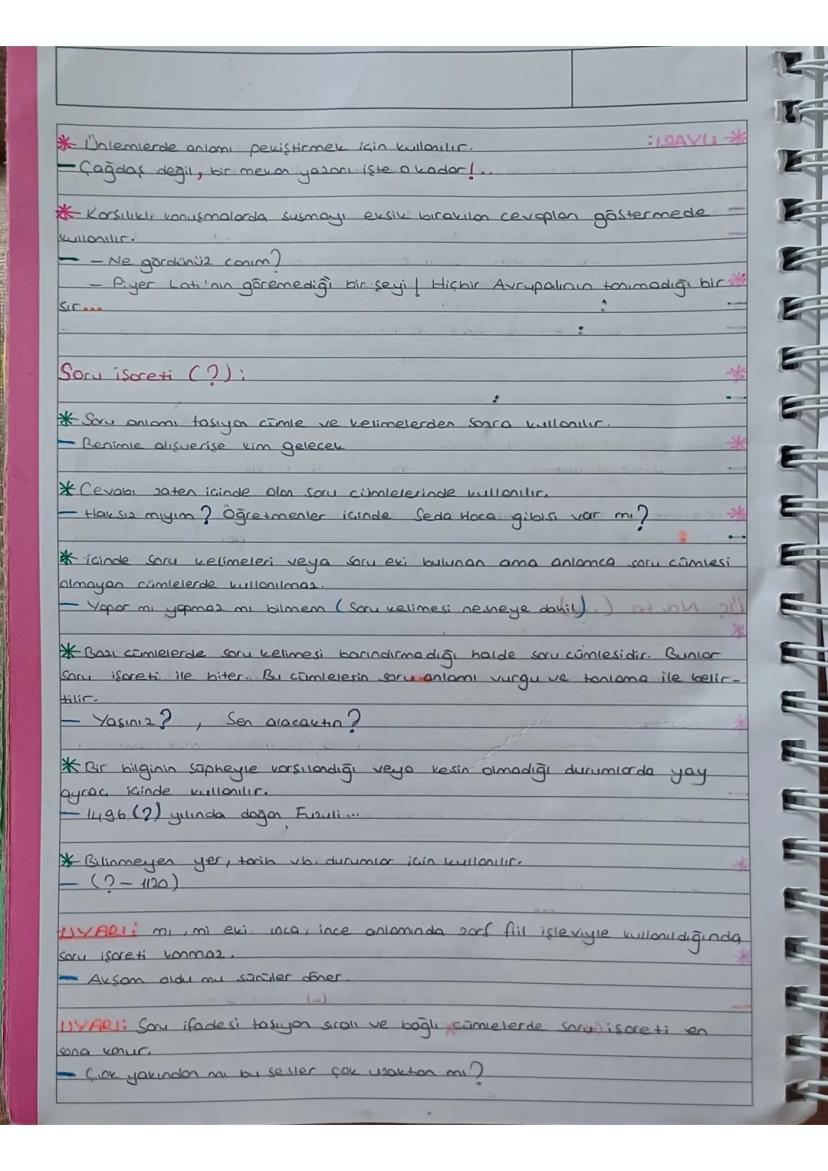 * Ünlemlerde anlamı pekiştirmek için kullanılır.
- Çağdaş değil, bir mekan yazarı işte o kadar!..
* Karşılıklı konuşmalarda susmayı eksik bırakılan cevapları göstermede
kullanılır.
- - Ne gördünüz canım?
- Piyer Loti'nin göremediği bir şeyi! Hiçbir Avrupalının tanımadığı bir
sır...
Soru işareti (?):
* Soru anlamı taşıyan cümle ve kelimelerden sonra kullanılır.
- Benimle alışverişe kim gelecek
* Cevabı zaten içinde olan soru cümlelerinde kullanılır.
- Haksız mıyım? Öğretmenler içinde Seda Hoca gibisi var mı?
* içinde soru kelimeleri veya soru eki bulunan ama anlamca soru cümlesi
olmayan cümlelerde kullanılmaz.
- Yapar mı yapmaz mı bilmem (Soru kelimesi nesneye dahil)
* Bazı cümlelerde soru kelimesi barındırmadığı halde soru cümlesidir. Bunlar
soru işareti ile biter. Bu cümlelerin soru anlamı vurgu ve tonlama ile belir-
tilir.
- Yaşınız?, Sen alacaktın?
* Bir bilginin şüpheyle karşılandığı veya kesin olmadığı durumlarda yay
ayraç içinde kullanılır.
- 1496 (?) yılında doğan Fuzuli...
* Bilinmeyen yer, tarih vb. durumlar için kullanılır.
- (? - 1120)
UYARI: mı, mi eki ınca, ince anlamında zarf fiil işleviyle kullanıldığında
soru işareti konmaz.
- Akşam oldu mu sürüler döner.
UYARI: Soru ifadesi taşıyan sıralı ve bağlı cümlelerde soru işareti en
sona konur.
- Çok yakından mı bu sesler çok uzaktan mı?